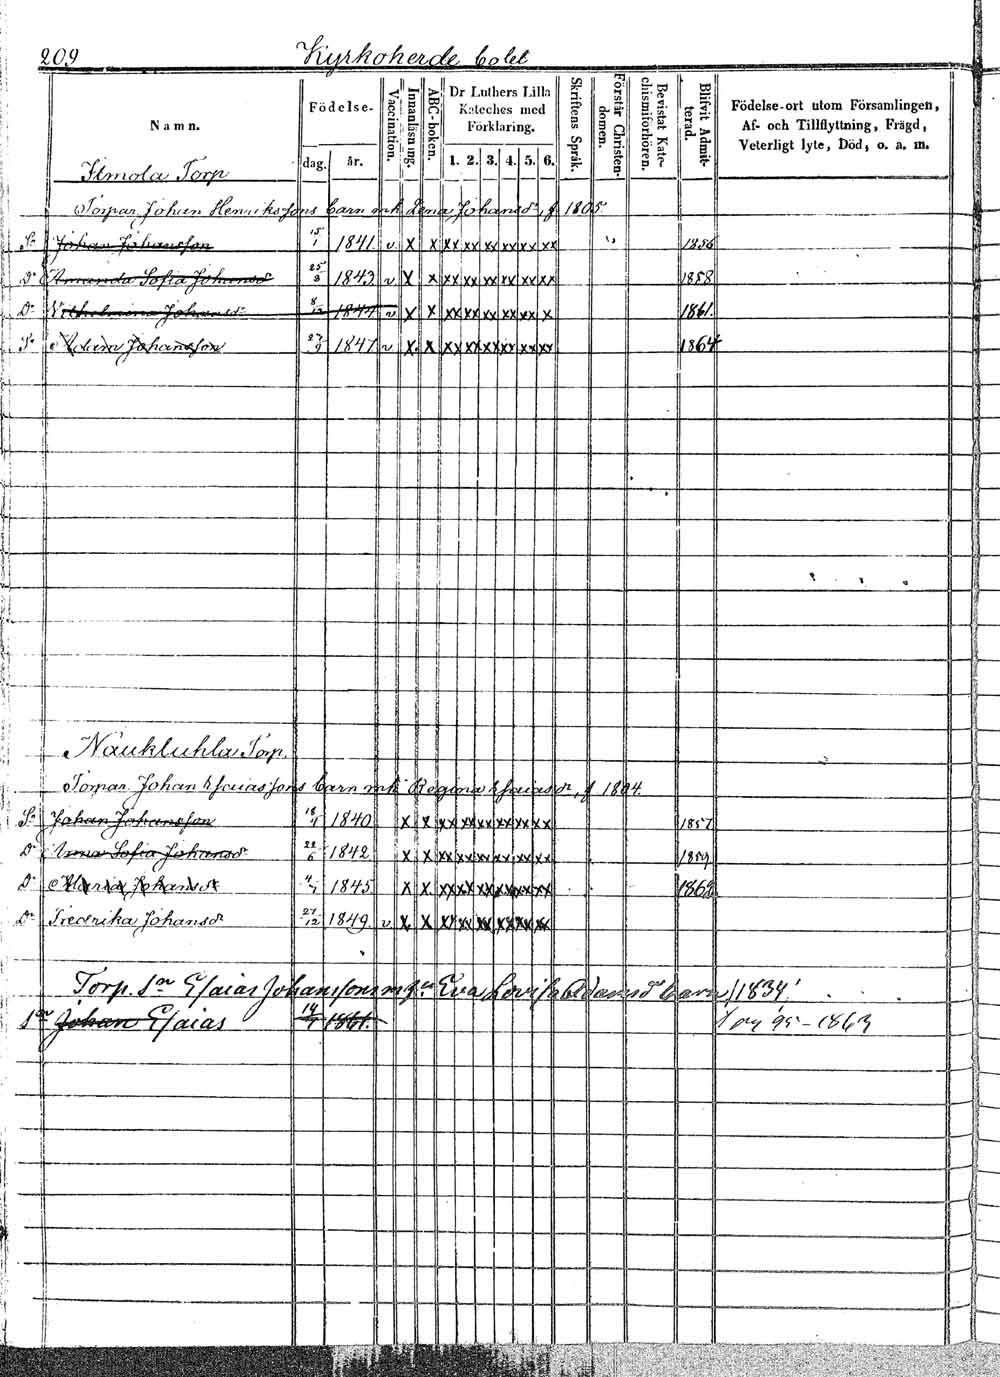 209 Kyrkoherde bolet
Namn. Födelse- dag. år. Vaccination. Innanläsning. ABC-boken. Dr Luthers Lilla Kateches med Förklaring. 1. 2. 3. 4. 5. 6. Skriftens Språk. Förstår Christendomen. Bevistat Katechismiförhören. Blifvit Admitterad. Födelse-ort utom Församlingen, Af- och Tillflyttning, Frägd, Veterligt lyte, Död, o. a. m.
Ilmola Torp
Torpar. Johan Henrikssons barn mh. Lena Johansdr, f 1805
Sn Johan Johansson 15/1 1841 v x x xx xx xx xx xx xx 1856
Dr Amanda Sofia Johansdr 25/3 1843 v x x xx xx xx xx xx xx 1858
Dr Vilhelmina Johansdr 8/12 1844 v x x xx xx xx xx xx x 1861.
Sn Adam Johansson 27/9 1847 v x x xx xx xx xx xx xx 1864
Naukluhla Torp.
Torpar. Johan Esaiassons barn mh Regina Esaiasdr, f 1804.
Sn Johan Johansson 18/1 1840 x x xx xx xx xx xx xx 1857
Dr Anna Sofia Johansdr 22/6 1842 x x xx xx xx xx xx xx 1859
Dr Maria Johansdr 4/1 1845 x x xx xx xx xx xx xx 1862
Dr Fredrika Johansdr 27/12 1849 v x x xx xx xx xx xx xx
Torp. Sn Esaias Johanssons m Eva Lovisa Adamsdr barn /1834
Sn Johan Esaias 14/7 1861. 95 - 1863